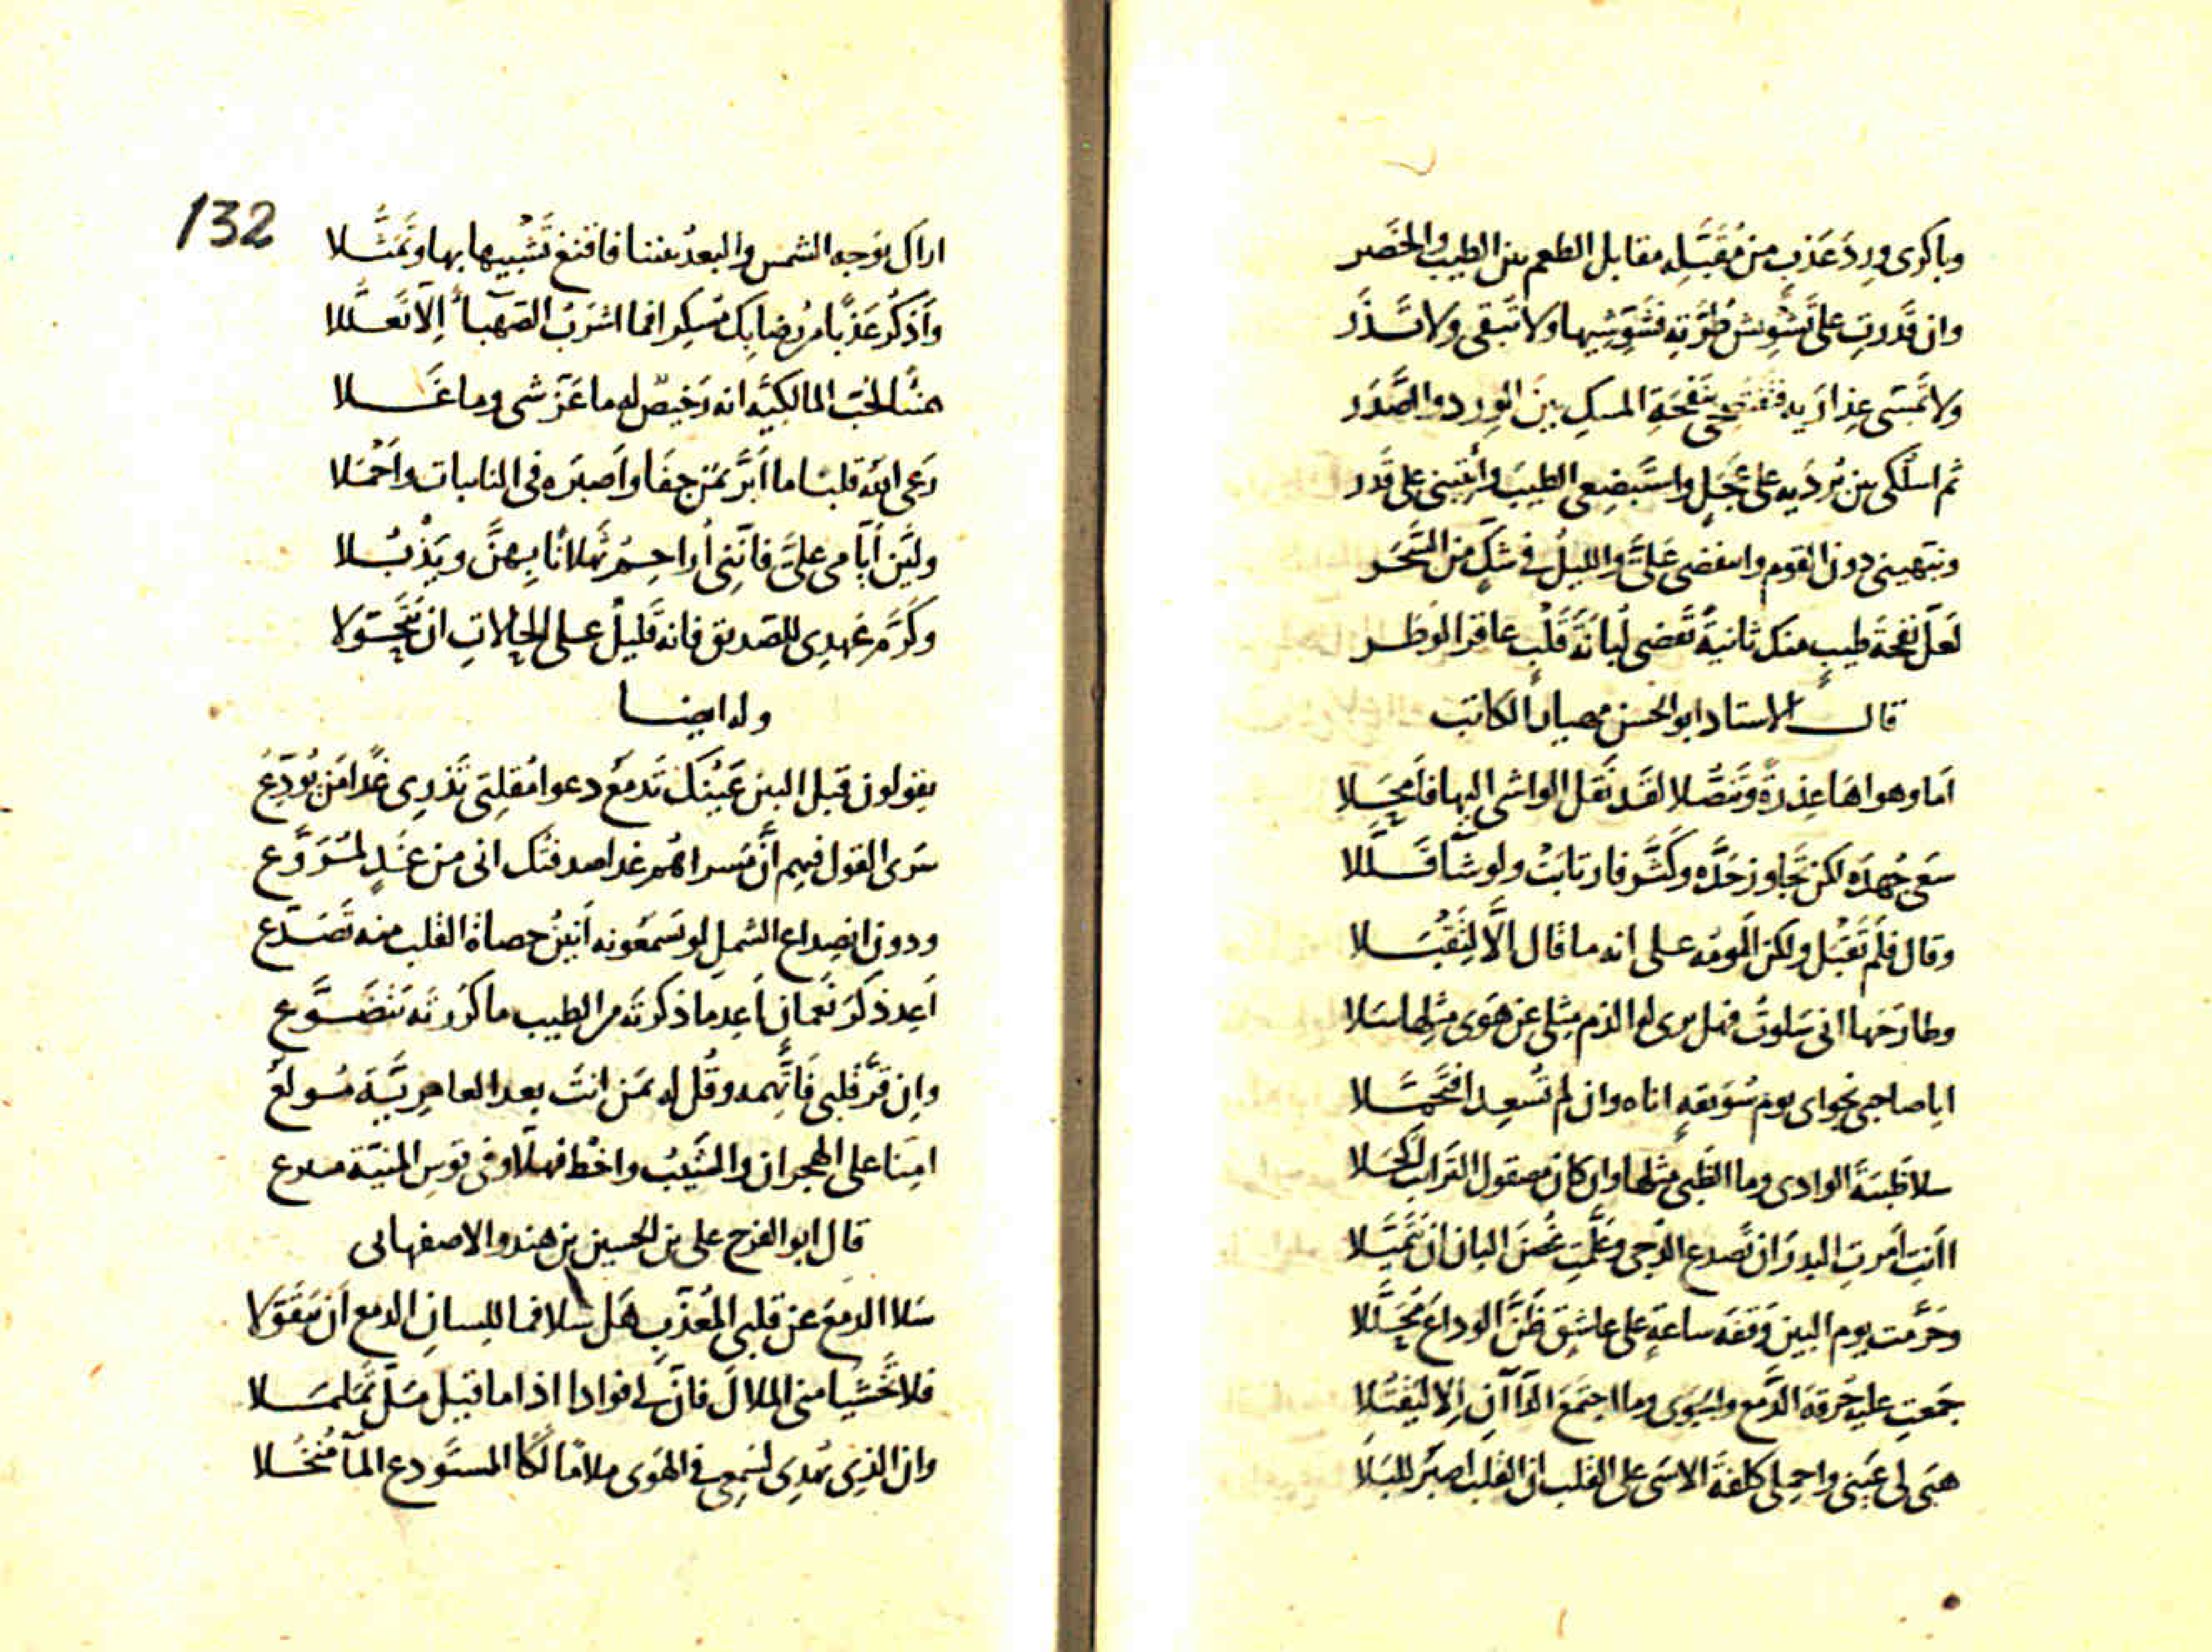 وباكرى وِردَ عَذبٍ من مُقَبَّلِه مقابل الطعم بين الطيب والخَصَر
وان قَدَرتِ على تَشوِيش طُرَّته فشَوِّشيها ولا تُبقى ولا تَذَر
ولا تَمَسّى عِذارَيه فتفتضحى بنفحَةِ المسكِ بين الوِرد والصَّدَر
ثم اسلُكى بين بُردَيه على عَجَلٍ واستَبضِعى الطيبَ وأتينى على قَدَر
ونبّهينى دون القوم وانفضى عَلَىَّ والليلُ فى شكٍّ من السَّحَر
لَعلّ نفحةَ طيبٍ منك ثانيةً تَقضى لُبانَةَ قَلبٍ عاقر الوطَر
قال الاستاد ابو الحسن مهيار الكاتب
اَما وهواها عِذرةً وتَنَصُّلا لقَد نَقل الواشى اليها فاَمحَلا
سَعى جُهدَه لكن تجاوز حَدَّه وكَثَّر فارتابَتْ ولو شآ قَلَّلا
وقال فلَم تَقبَل ولكن الومُه على انه ما قال الّا لتقبَلا
وطارَحَها انى سَلوتُ فهل يرى له الذم مثلى عن هَوى مثلِها سَلا
ايا صاحبى نجواى يوم سُوَيقةٍ اناه وان لم تُسعِدا فتَجمَّلا
سلا ظَبيَةَ الوادى وما الظَبىُ مِثلَها وان كان مصقول التَرائب اكحَلا
اأنتِ اَمَرتِ البدرَ ان يَصدع الدُجى وعَلَّمتِ غُصنَ البان ان يتَمَيَّلا
وحَرَّمت يوم البين وَقفَة ساعةٍ على عاشِقٍ ظَنَّ الوداعَ مُحَلَّلا
جَمَعتِ عليه حُرقة الدَّمع والجَوى وما اجتَمَعَ الدَّاآنِ اِلا ليَقتُلا
هَبى لى عَينى واحملى كلفة الاسَى على القلب ان القلب اصبَر للبَلا
132
اراكِ بوَجه الشمس والبعدُ بيننا فاقنعُ تَشبيها بها وتَمَثُّلا
وأذكُر عَذبًا مِن رُضابِك مُسكِرا فما اشرَبُ الصَهبآءَ اِلّا تَعَلُّلا
هنيًّا لحُبّ المالكيّة انه رَخيصٌ له ما عَزّ منّى وما غَلا
رَعى اللّه قلبى ما أَبَرَّ بمَن جفَا واَصبَرَه فى النايبات واَحمَلا
وكَرَّم عَهدى للصَديق فانه قَليلٌ على الحالاتِ ان يَتَحَوّلا
وله ايضا
يقولون قبل البين عَينُك تَدمَعُ دعوا مُقلتى تَدرِى غَدًا مَن تُوَدِّعُ
ودون انصِداع الشملِ لو تَسمَعُونه أنينُ حصاة القلب منه تَصَدّع
أعِد ذكرَ نَعمانٍ أعِد ما ذكرتَه من الطيب ما كرّرتَه يَتضَوَّع
وإن قَرّ قلبى فاتَّهِمه وقُل له بمَن انتَ بعد العامِريَّة مُولعُ
قال ابو الفرج على بن الحسين بن هندو الاصفهانى
سَلا الدمعَ عن قلبى المُعَذّبِ هَل سَلا فما للِسانِ الدمع أن يتقَوّلا
فلا تخشَيا منى الملالَ فانّ لى فوادا اذا ما قيل مَلَّ تَمَلمَلا
وان الذى يُهدِى لسَمعى فى الهَوى ملامًا لكا المستَودع المآ مُنخُلا